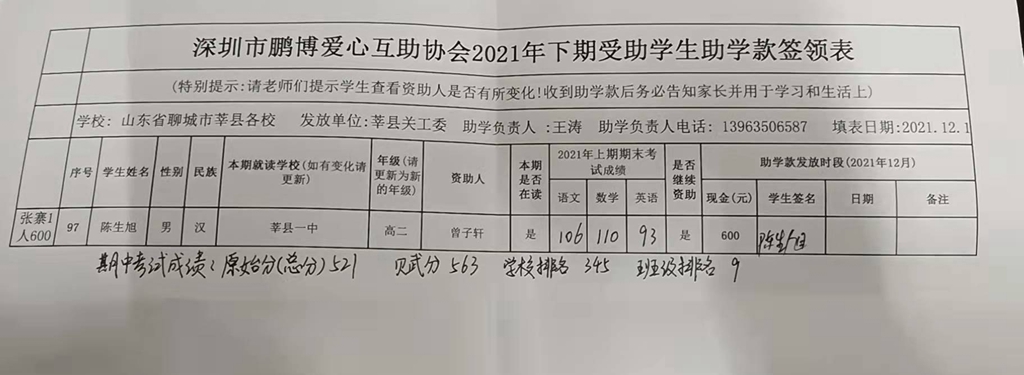 深圳市鹏博爱心互助协会2021年下期受助学生助学款签领表
(特别提示:请老师们提示学生查看资助人是否有所变化!收到助学款后务必告知家长并用于学习和生活上)
学校: 山东省聊城市莘县各校 发放单位:莘县关工委 助学负责人 :王涛 助学负责人电话: 13963506587 填表日期:2021.12.1
序号 学生姓名 性别 民族 本期就读学校(如有变化请更新) 年级(请更新为新的年级) 资助人 本期是否在读 2021年上期期末考试成绩 语文 数学 英语 是否继续资助 助学款发放时段(2021年12月) 现金(元) 学生签名 日期 备注
张寨1人600 97 陈生旭 男 汉 莘县一中 高二 曾子轩 是 106 110 93 是 600 陈生旭
期中考试成绩: 原始分(总分) 521 贝武分 563 学校排名 345 班级排名 9